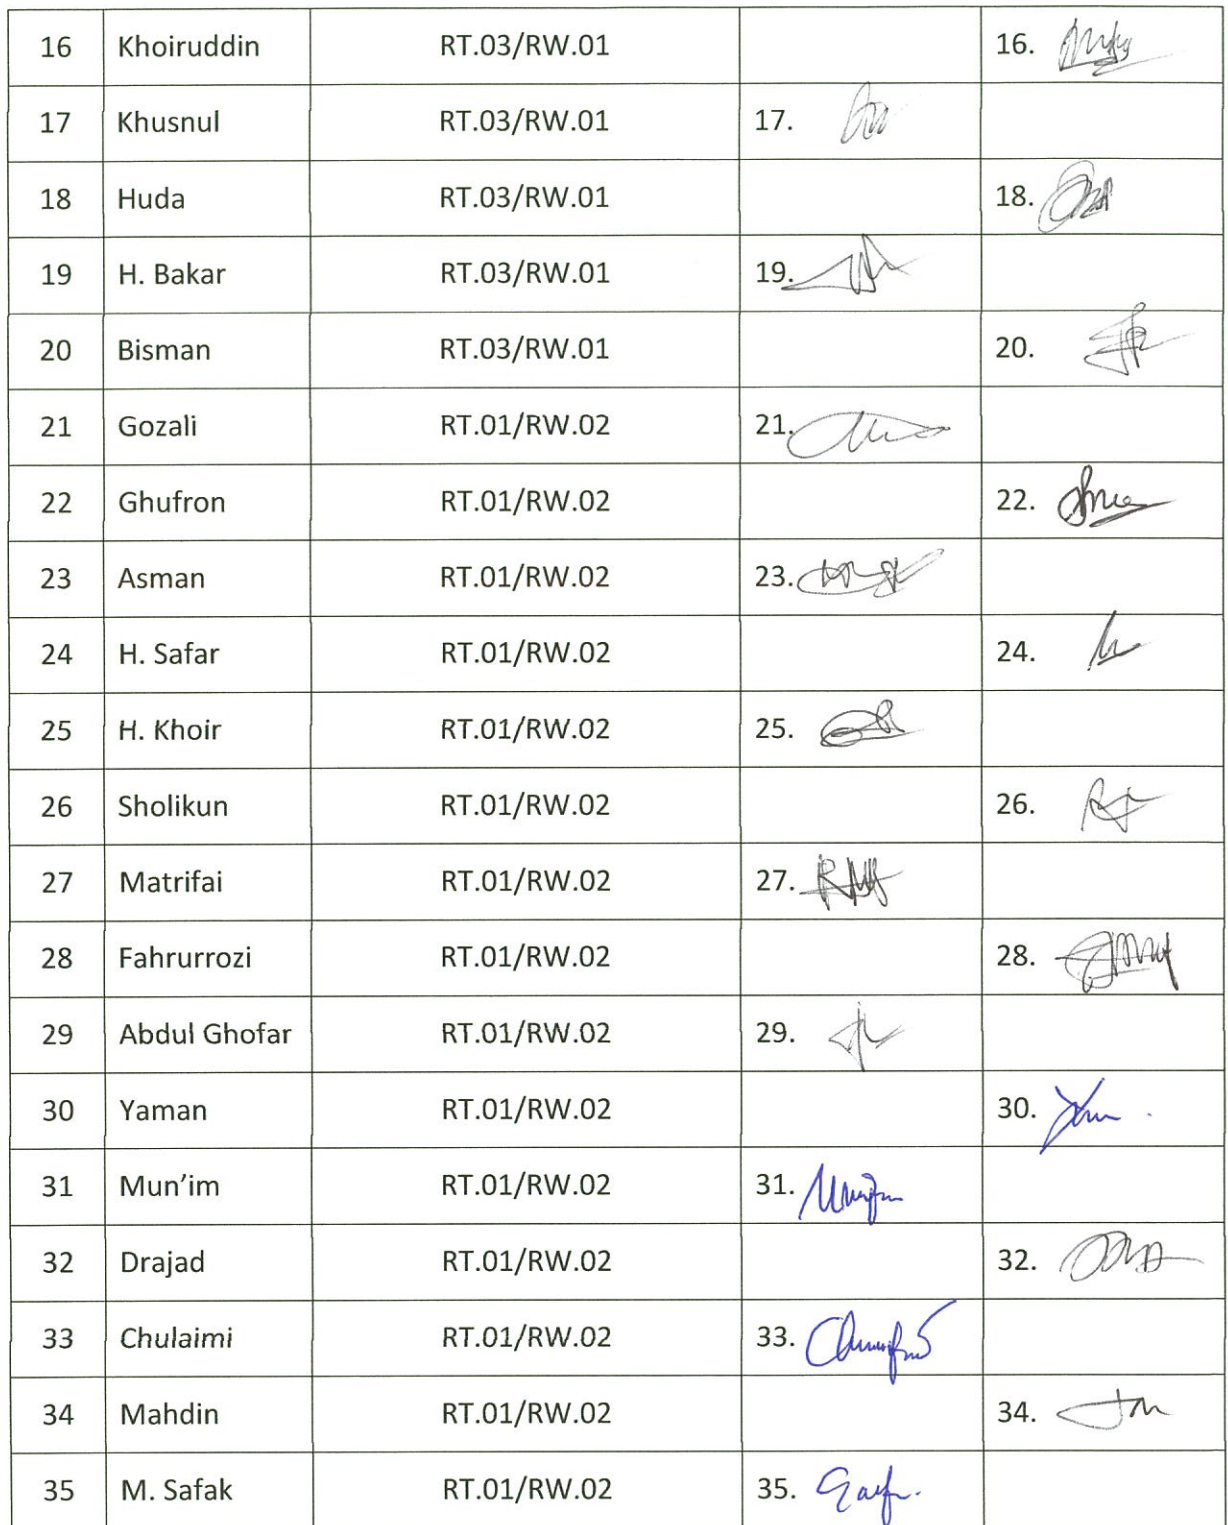 16 Khoiruddin RT.03/RW.01 16.
17 Khusnul RT.03/RW.01 17.
18 Huda RT.03/RW.01 18.
19 H. Bakar RT.03/RW.01 19.
20 Bisman RT.03/RW.01 20.
21 Gozali RT.01/RW.02 21.
22 Ghufron RT.01/RW.02 22.
23 Asman RT.01/RW.02 23.
24 H. Safar RT.01/RW.02 24.
25 H. Khoir RT.01/RW.02 25.
26 Sholikun RT.01/RW.02 26.
27 Matrifai RT.01/RW.02 27.
28 Fahrurrozi RT.01/RW.02 28.
29 Abdul Ghofar RT.01/RW.02 29.
30 Yaman RT.01/RW.02 30.
31 Mun’im RT.01/RW.02 31.
32 Drajad RT.01/RW.02 32.
33 Chulaimi RT.01/RW.02 33.
34 Mahdin RT.01/RW.02 34.
35 M. Safak RT.01/RW.02 35.